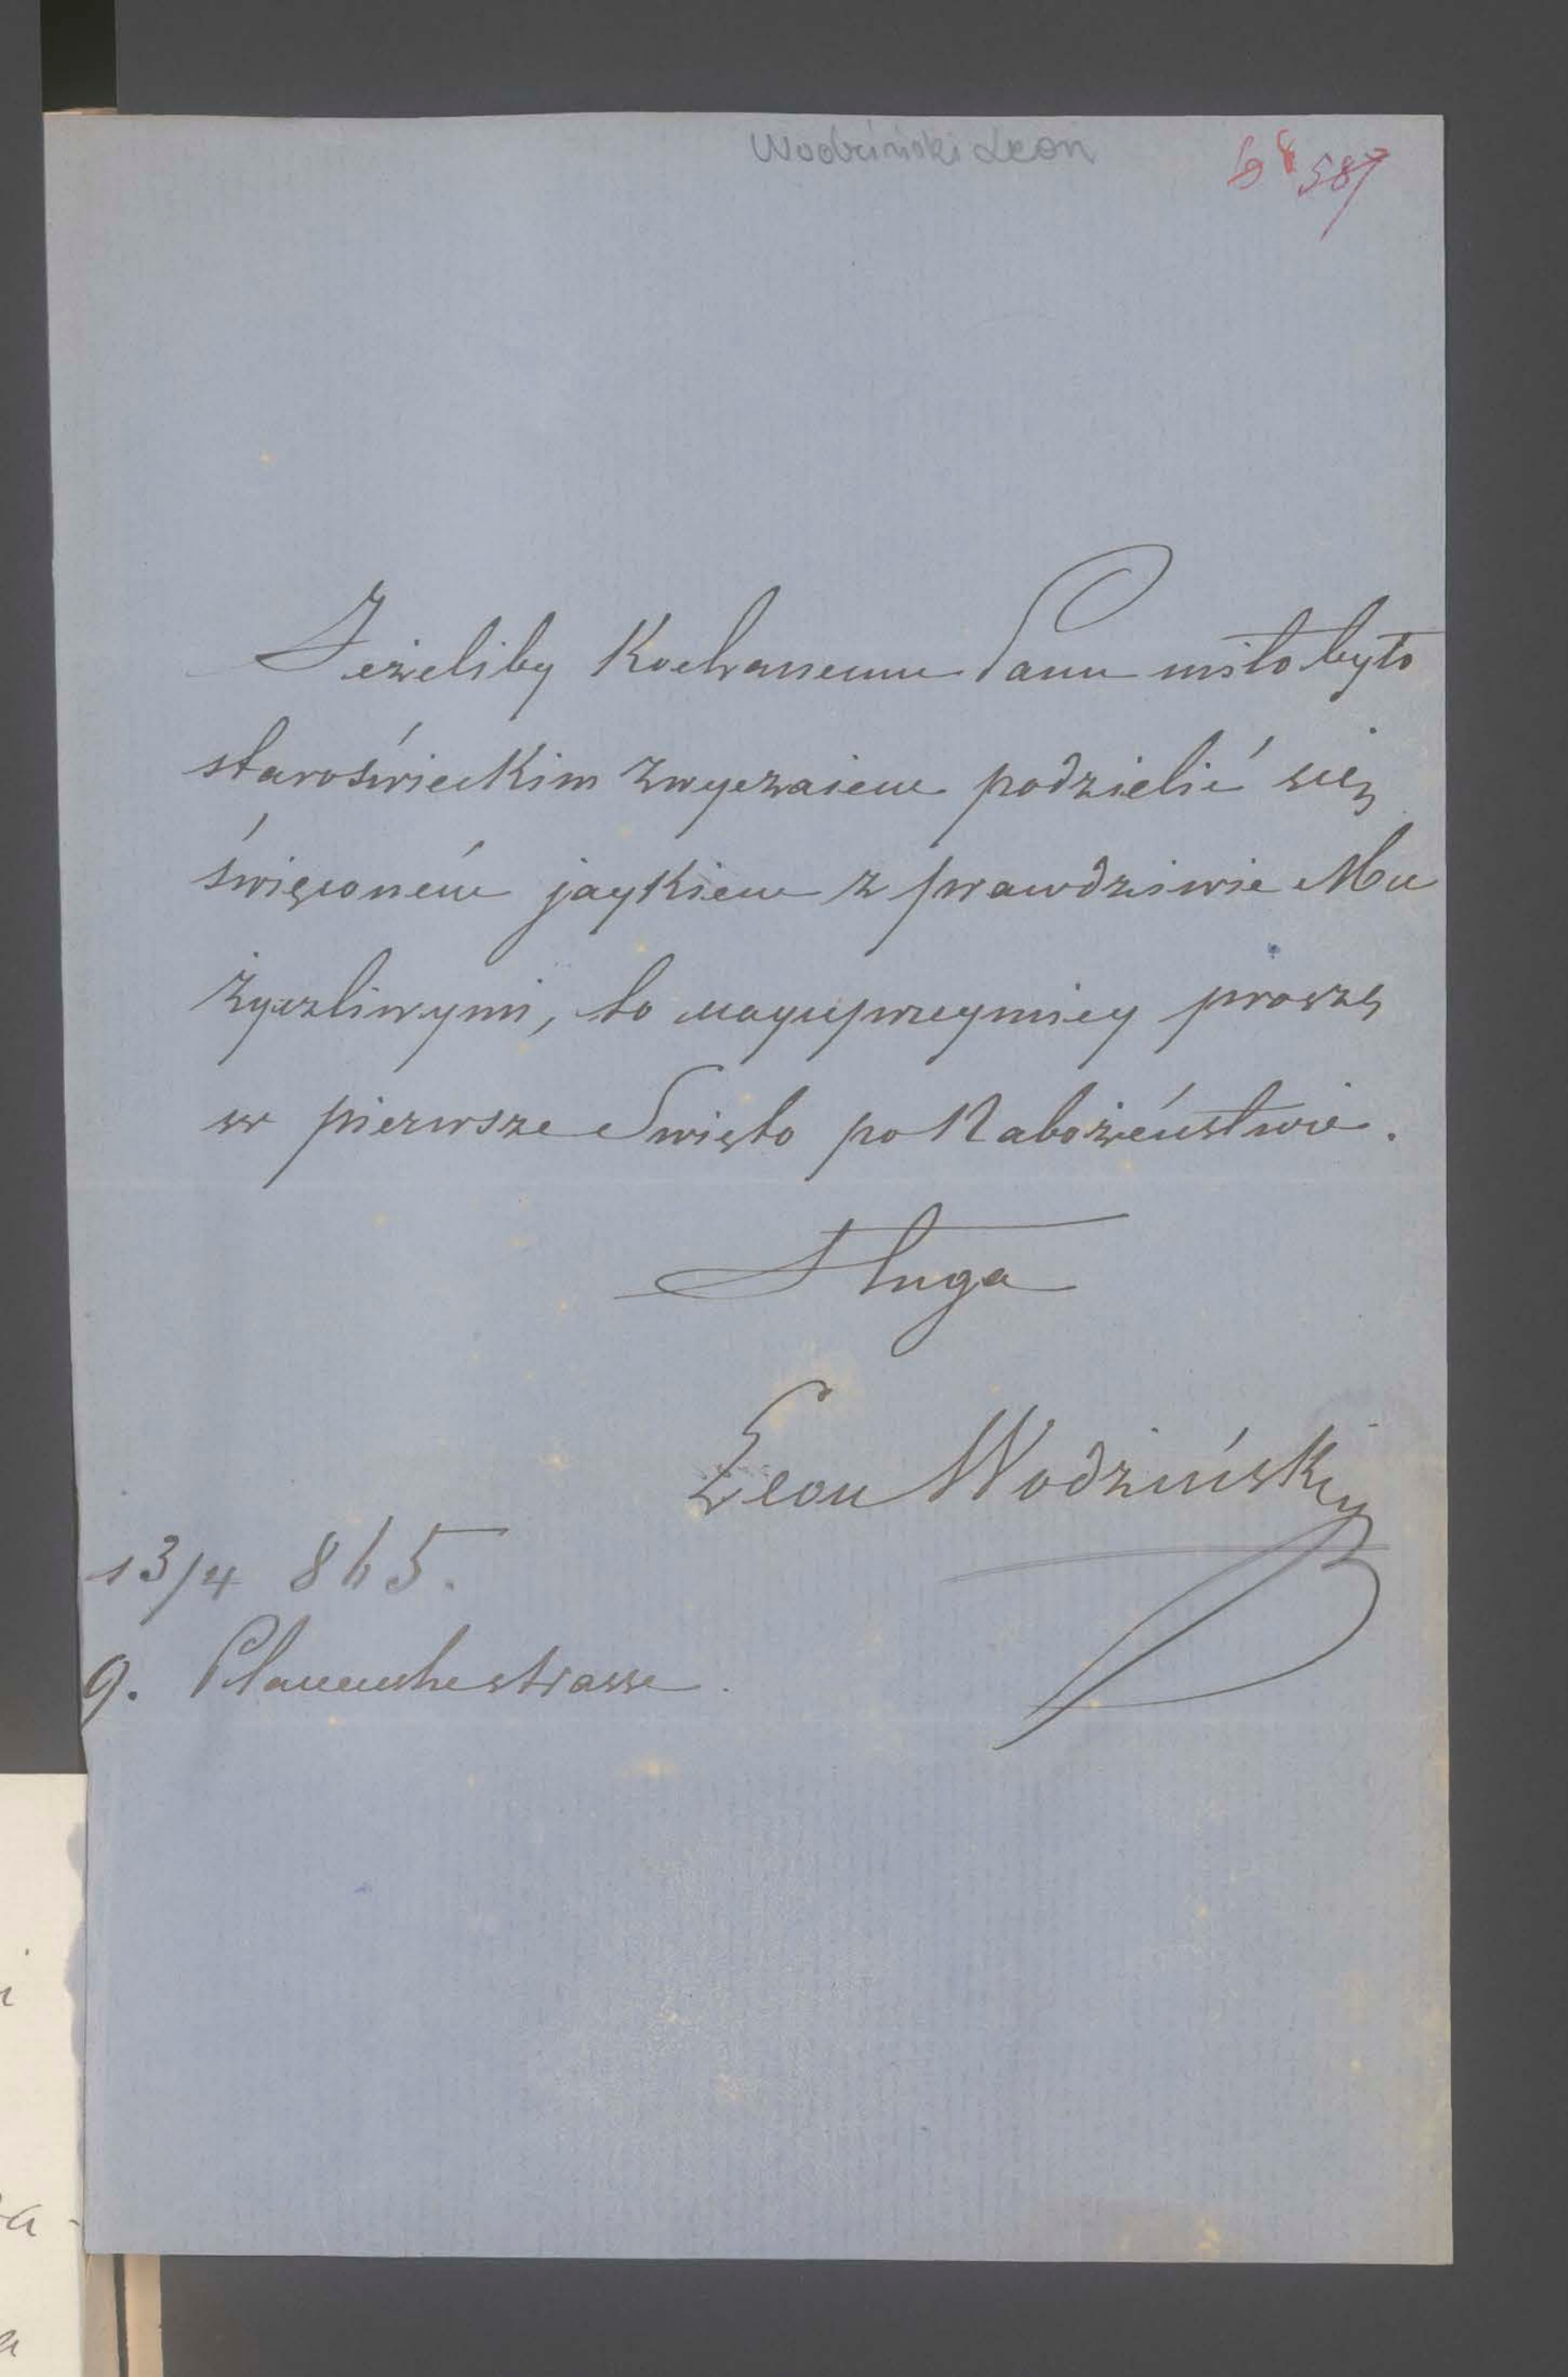 Wodziński Leon
587
Jeżeliby Kochanemu Panu miło było
staroświeckim zwyczaiem podzielić się
święconém jaykiem z prawdziwie Mu
życzliwymi, to nayuprzeymiey proszę
w pierwsze Swięto po Nabożeństwie.
Sługa
Leon Wodziński
13/4 865.
9. Plauenschestrasse.